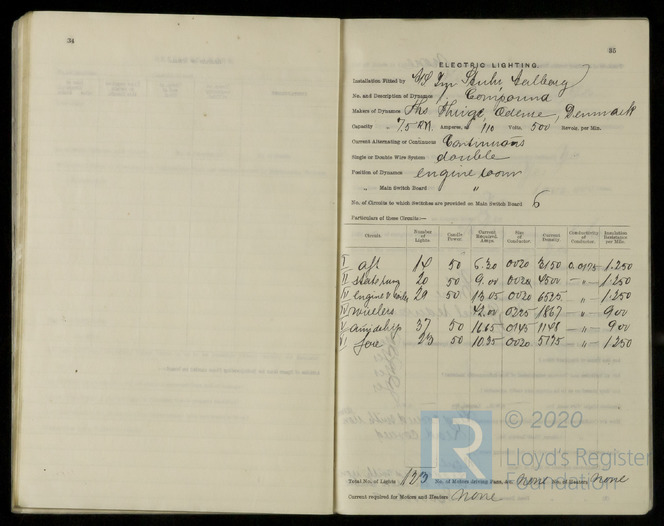 34
35
ELECTRIC LIGHTING.
Installation Fitted by Stuhr Aalborg
No. and Description of Dynamos 1. Compound
Makers of Dynamos Ths Thrige, Odense, Denmark
Capacity 7.5 KW Amperes, at 110 Volts, 500 Revols. per Min.
Current Alternating or Continuous Continuous
Single or Double Wire System double
Position of Dynamos engine room
„ Main Switch Board "
No. of Circuits to which Switches are provided on Main Switch Board 6
Particulars of these Circuits:—
Circuit. Number of Lights. Candle Power. Current Required. Amps. Size of Conductor. Current Density. Conductivity of Conductor. Insulation Resistance per Mile.
I aft 14 50 6.30 0020 3150 0.0175 1.250
II 20 50 9.00 0020 4500 -"- 1.250
III engine & boiler 29 50 13.05 0020 6525 -"- 1.250
IV 42.00 0225 1867 -"- 900
V 37 50 16.65 0145 1148 -"- 900
VI fore 23 50 10.35 0020 5175 -"- 1.250
Total No. of Lights 123 No. of Motors driving Fans, &c. none No. of Heaters none
Current required for Motors and Heaters none
LR © 2020
Lloyd's Register
Foundation